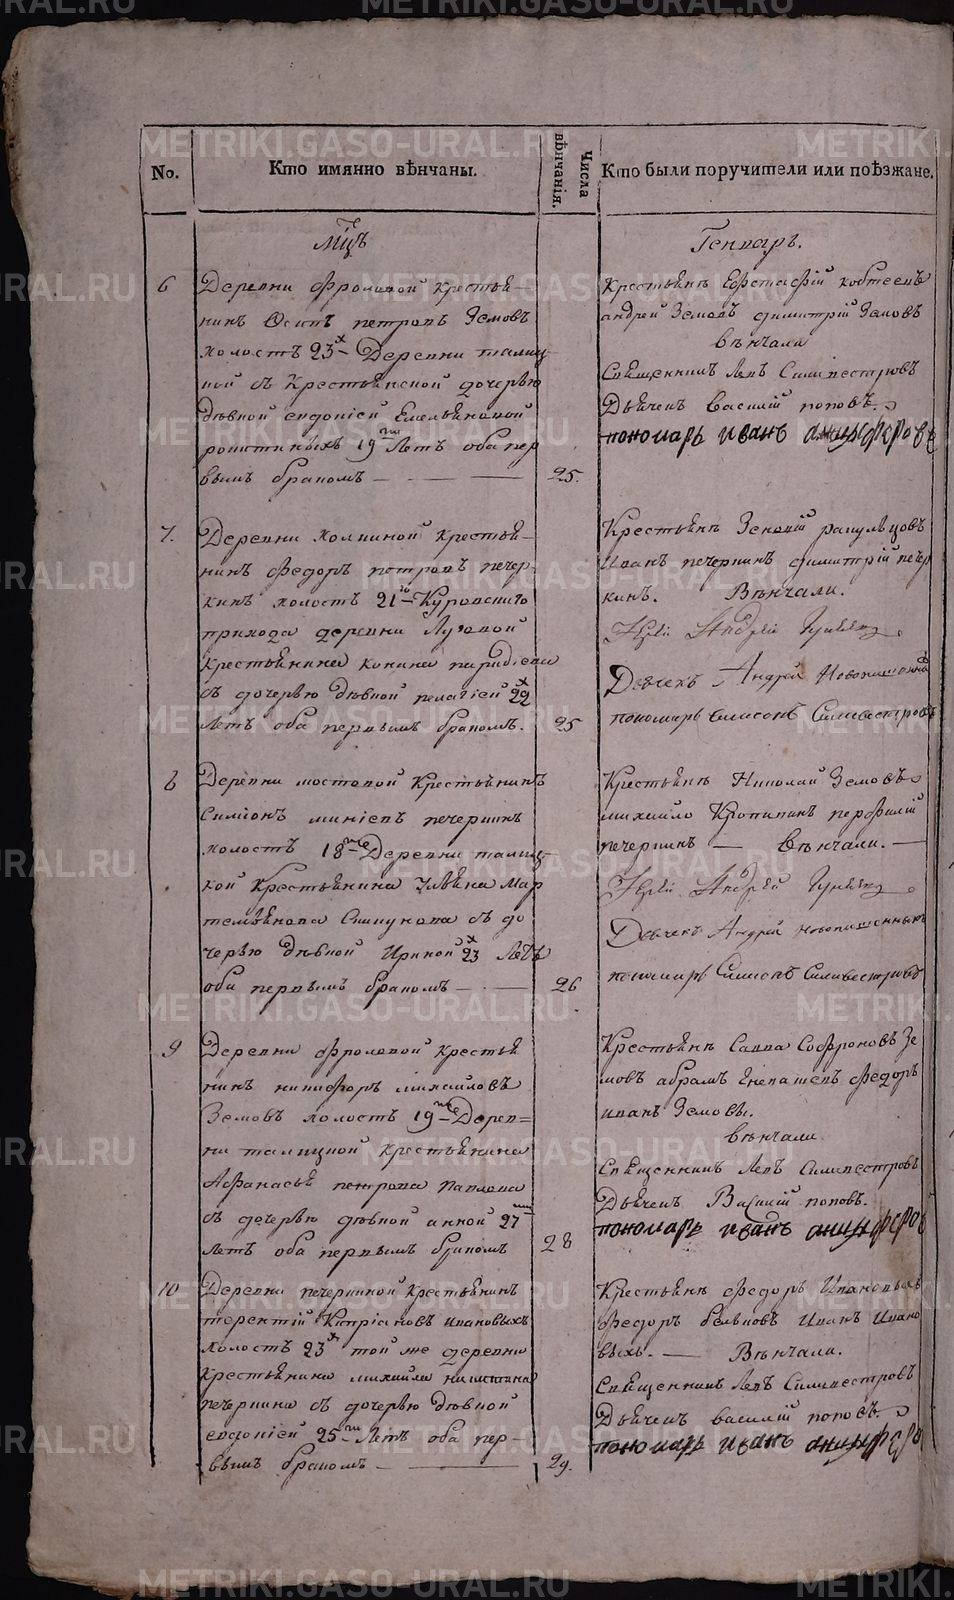 No.
Кто имянно вѣнчаны.
Числа вѣнчанія.
Кто были поручители или поѣзжане.
Мцъ
Генварь.
6
Деревни Фроловой крестья-
нинъ Осипъ петровъ Земовъ
холостъ 23х Деревни талиц-
кой съ Крестьянской дочерью
дѣвкой евдокіей Емельяновой
19ти Летъ оба пер
вымъ бракомъ
25.
Крестьянъ
андрей Земовъ димитрій Земовъ
вѣнчали
Священникъ Левъ Силвестровъ
Дьячекъ василій поповъ.
пономарь иванъ анцыферовъ
7.
Деревни Колпиной крестья-
нинъ федоръ петровъ печер-
кинъ холостъ 21го Куровского
прихода деревни Луговой
крестьянина конина
съ дочерью дѣвкой пелагіей 22х
Летъ оба первымъ бракомъ.
25
Крестьянъ Зеновій
Иванъ печеркинъ димитрій печер
кинъ. Вѣнчали.
Іерей Андрей
Деячекъ Андрей
пономарь Симеонъ Силвестровъ
8
Деревни мостовой Крестьянинъ
Симіонъ печеркинъ
холостъ 18ти Деревни талиц-
кой Крестьянина Ульяна Мар
темьянова съ до
черью дѣвкой Ириной 23х Летъ
оба первымъ бракомъ
26
Крестьянъ Николай Земовъ
михайло Кропининъ перфилій
печеркинъ — Вѣнчали.
Іерей Андрей
Деячекъ Андрей новопашенныхъ
пономарь Симеонъ Силвестровъ
9
Деревни Фроловой крестья
нинъ никифоръ михайловъ
Земовъ холостъ 19ти Дерев=
ни талицкой крестьянина
Афанасья петрова Павлова
съ дочерью дѣвкой анной 27ми
Летъ оба первымъ бракомъ
28
Крестьянъ Савва Софроновъ Зе
мовъ абрамъ федоръ
иванъ Земовы.
вѣнчали
Священникъ Левъ Силвестровъ
Дьячекъ Василій поповъ.
пономарь иванъ анцыферов
10
Деревни печеркиной крестьянинъ
терентій Кипріановъ ивановыхъ
холостъ 23х той же деревни
Крестьянина михайла никитина
печеркина съ дочерью дѣвкой
евдокіей 25ти Летъ оба пер-
вымъ бракомъ
29.
Крестьянъ федоръ Ивановыхъ
федоръ Иванъ Ивано
выхъ. — Вѣнчали.
Священникъ Левъ Силвестровъ
Дьячекъ василій поповъ.
пономарь иванъ анцыферо
METRIKI.GASO-URAL.RU